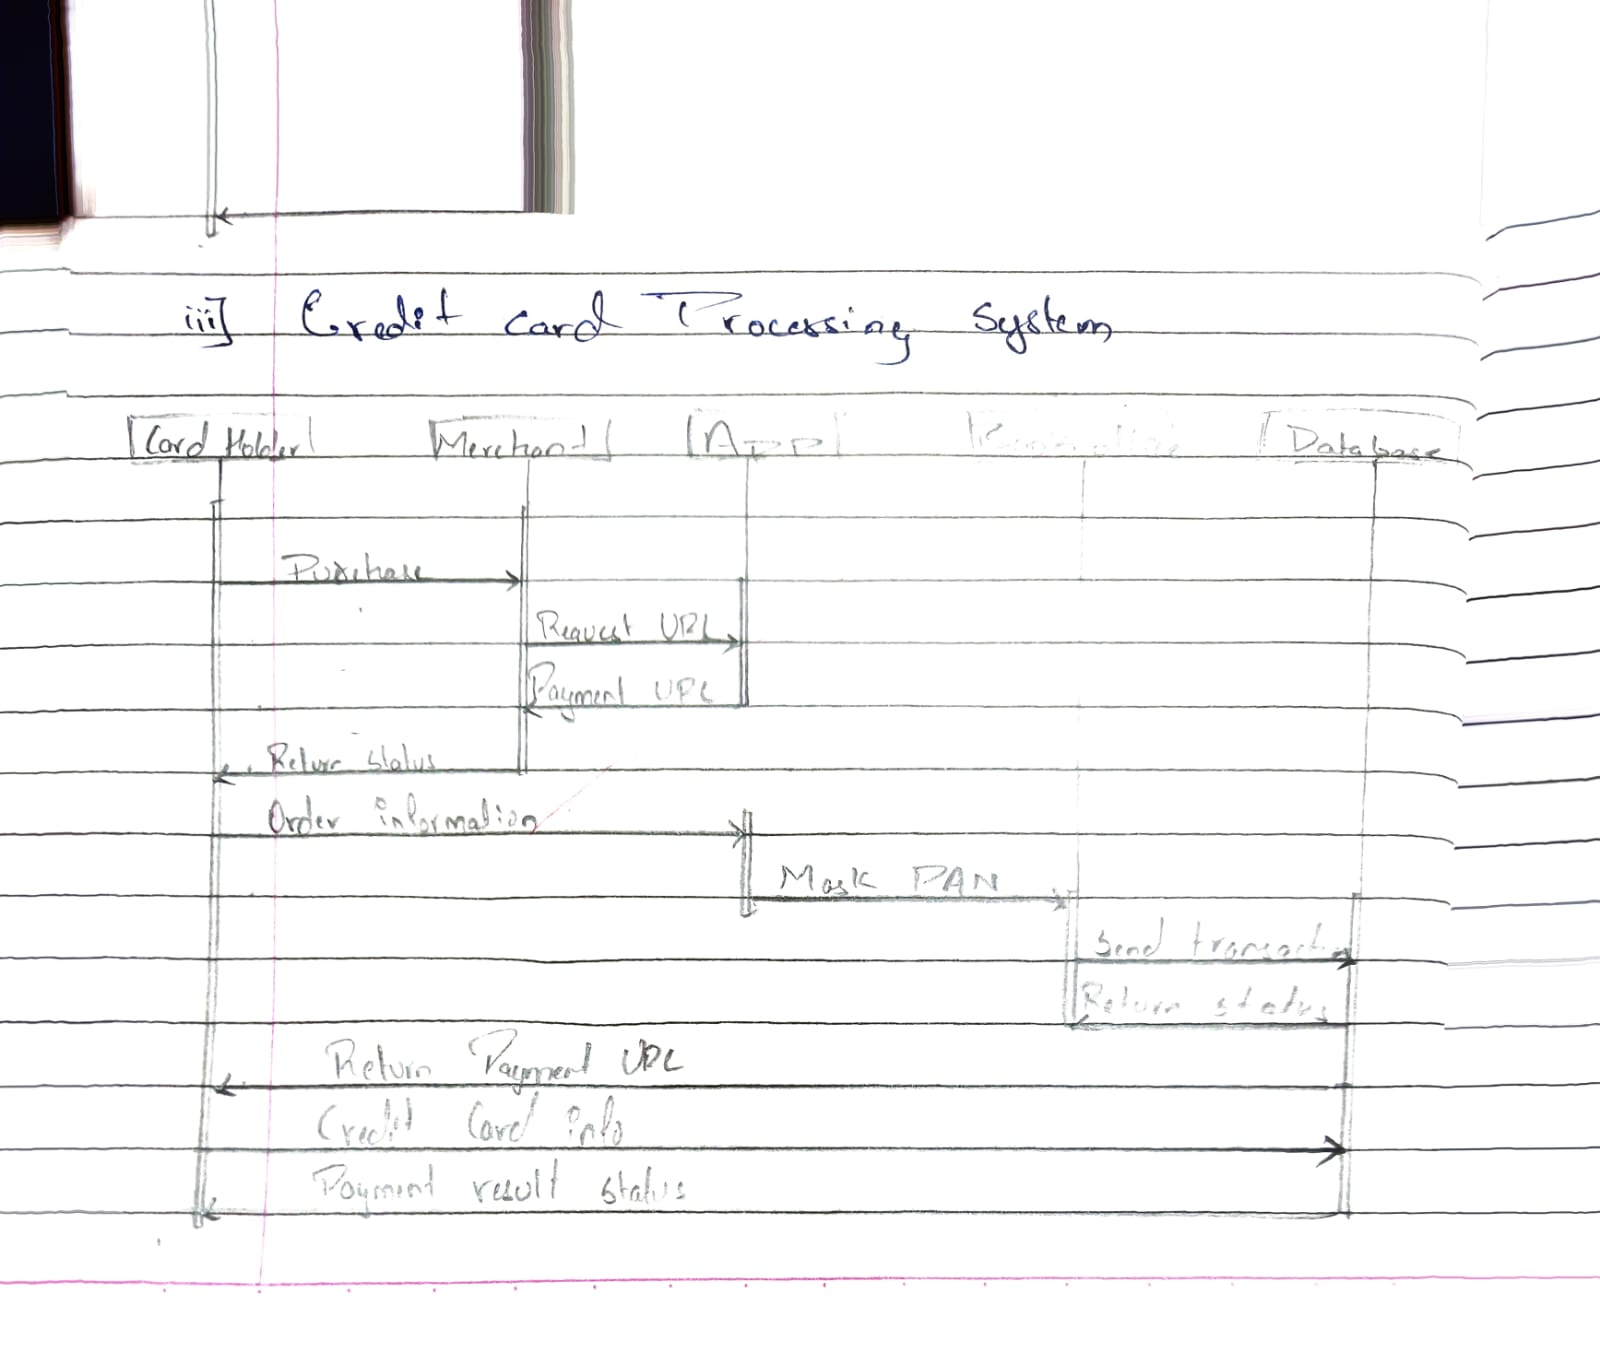 iii] Credit card Processing System
Card Holder Merchant App Database
Purchase
Request URL
Payment URL
Return status
Order information
Mask PAN
Send transactn
Return status
Return Payment URL
Credit Card info
Payment result status